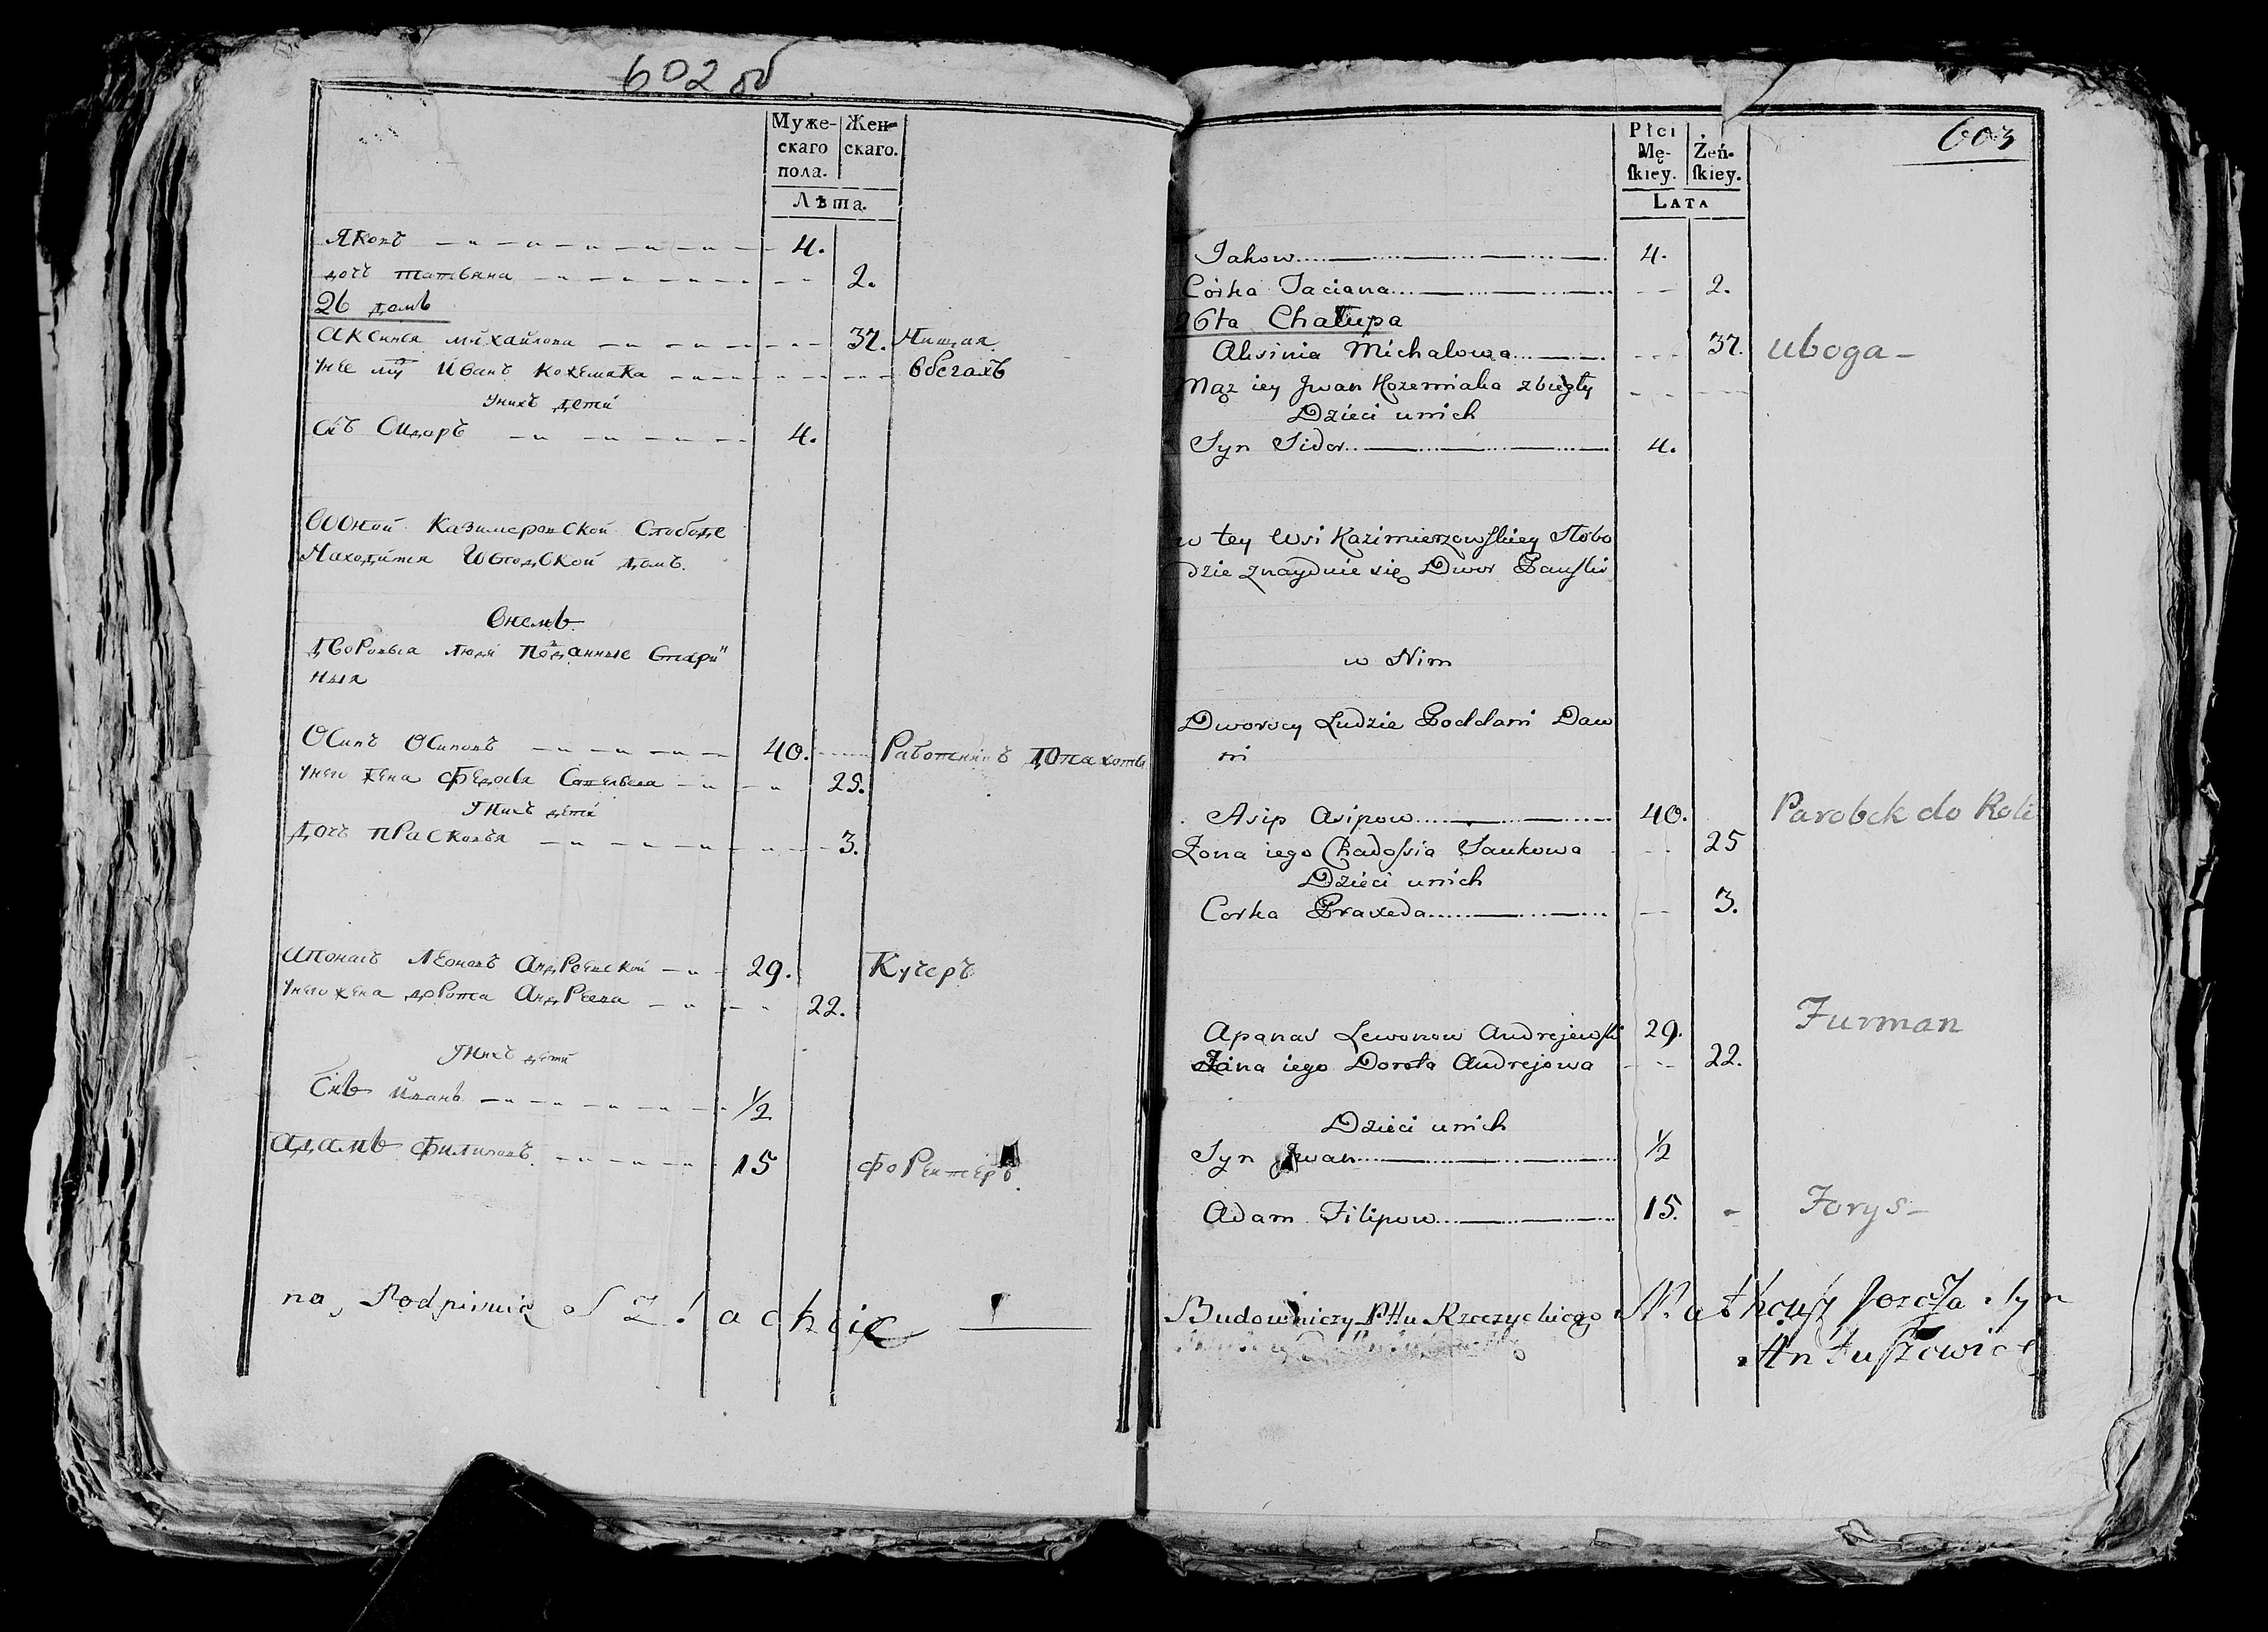 602 об
Муже- Жен-
скаго скаго.
пола.
Лѣта.
Яковъ 4.
дочь татьяна 2.
26 домъ
Аксинья михайлова 37. Нищая
унее мꙋ Иванъ кожемяка вбегахъ
унихъ дети
Снъ Сидоръ 4.
Вооной Казимеровской Слободе
Находится Господской домъ.
Внемъ
дворовыя люди подданные Стари"
ныя
Осипъ Осиповъ 40. Работникъ
унего жена Федосья 25.
Унихъ дети
Дочь Прасковья 3.
Апонасъ Леоновъ Андреевской 29. Кучеръ
унего жена дорота Андреева 22.
Унихъ дети
Снъ Иванъ 1/2
Адамъ Филиповъ. 15 Форейтеръ.
na, Podpisuię Szlachcic
603
Płci
Mę- Żeń-
ſkiey. ſkiey.
LATA
Jakow 4.
Córka Taciana 2.
26ta Chałupa
Aksinia Michałowa 37. uboga
Mąz iey Jwan Kozemiaka zbiegły
Dzieci unich
Syn Sidor 4.
w tey Wsi Kazimierzowſkiey Słobo
dzie znayduie się Dwor Pańſki
w Nim
Dworscy Ludzie Poddani Daw
ni
Asip Asipow 40. Parobek do Roli
Żona iego Chadoſsia Saukowa 25
Dzieci unich
Corka Praxeda 3.
Apanas Lewonow Andrejewſki 29. Furman
Żona iego Dorota Andrejowa 22.
Dzieci unich
Syn Jwan 1/2
Adam Filipow 15. Forys
Budowniczy Pttu Rzeczyckiego Józefa Syn
Antuſzewicz